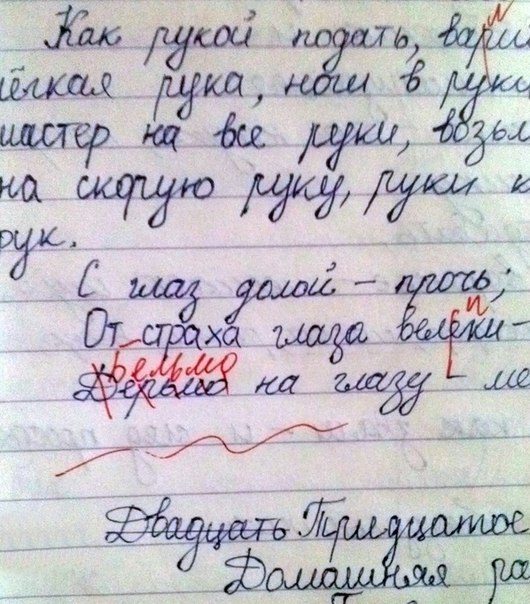 Как рукой подать, вари
лёгкая рука, ноги в руки
мастер на все руки, возьм
на скорую руку, руки к
рук.
С глаз долой – прочь;
От страха глаза велеки –
п
Бельмо
Дерьмо на глазу – ме
Двадцать Тридцатое
Домашняя ра